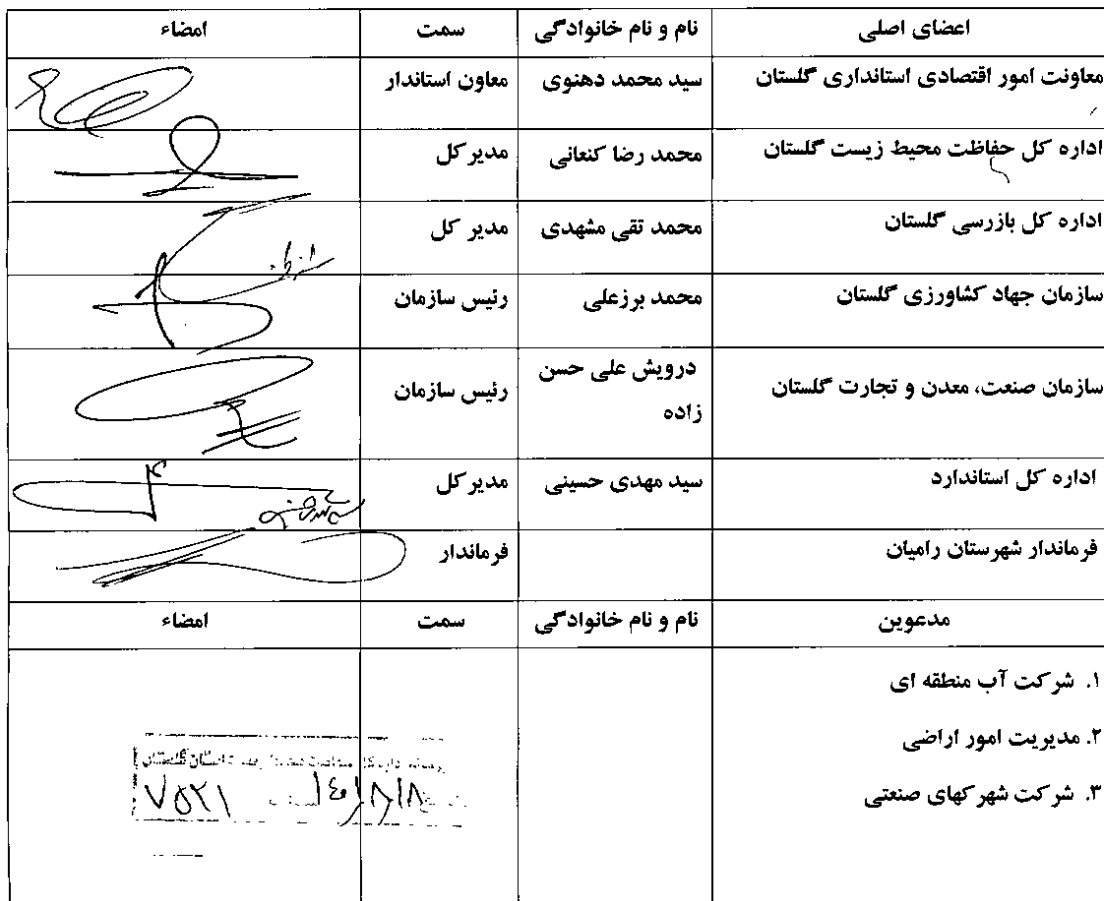 اعضای اصلی نام و نام خانوادگی سمت امضاء
معاونت امور اقتصادی استانداری گلستان سید محمد دهنوی معاون استاندار
اداره کل حفاظت محیط زیست گلستان محمد رضا کنعانی مدیر کل
اداره کل بازرسی گلستان محمد تقی مشهدی مدیر کل
سازمان جهاد کشاورزی گلستان محمد برزعلی رئیس سازمان
سازمان صنعت، معدن و تجارت گلستان درویش علی حسن رئیس سازمان
زاده
اداره کل استاندارد سید مهدی حسینی مدیر کل
فرماندار شهرستان رامیان فرماندار
مدعوین نام و نام خانوادگی سمت امضاء
۱. شرکت آب منطقه ای
۲. مدیریت امور اراضی
۳. شرکت شهرکهای صنعتی
استان گلستان
۷۵۲۱